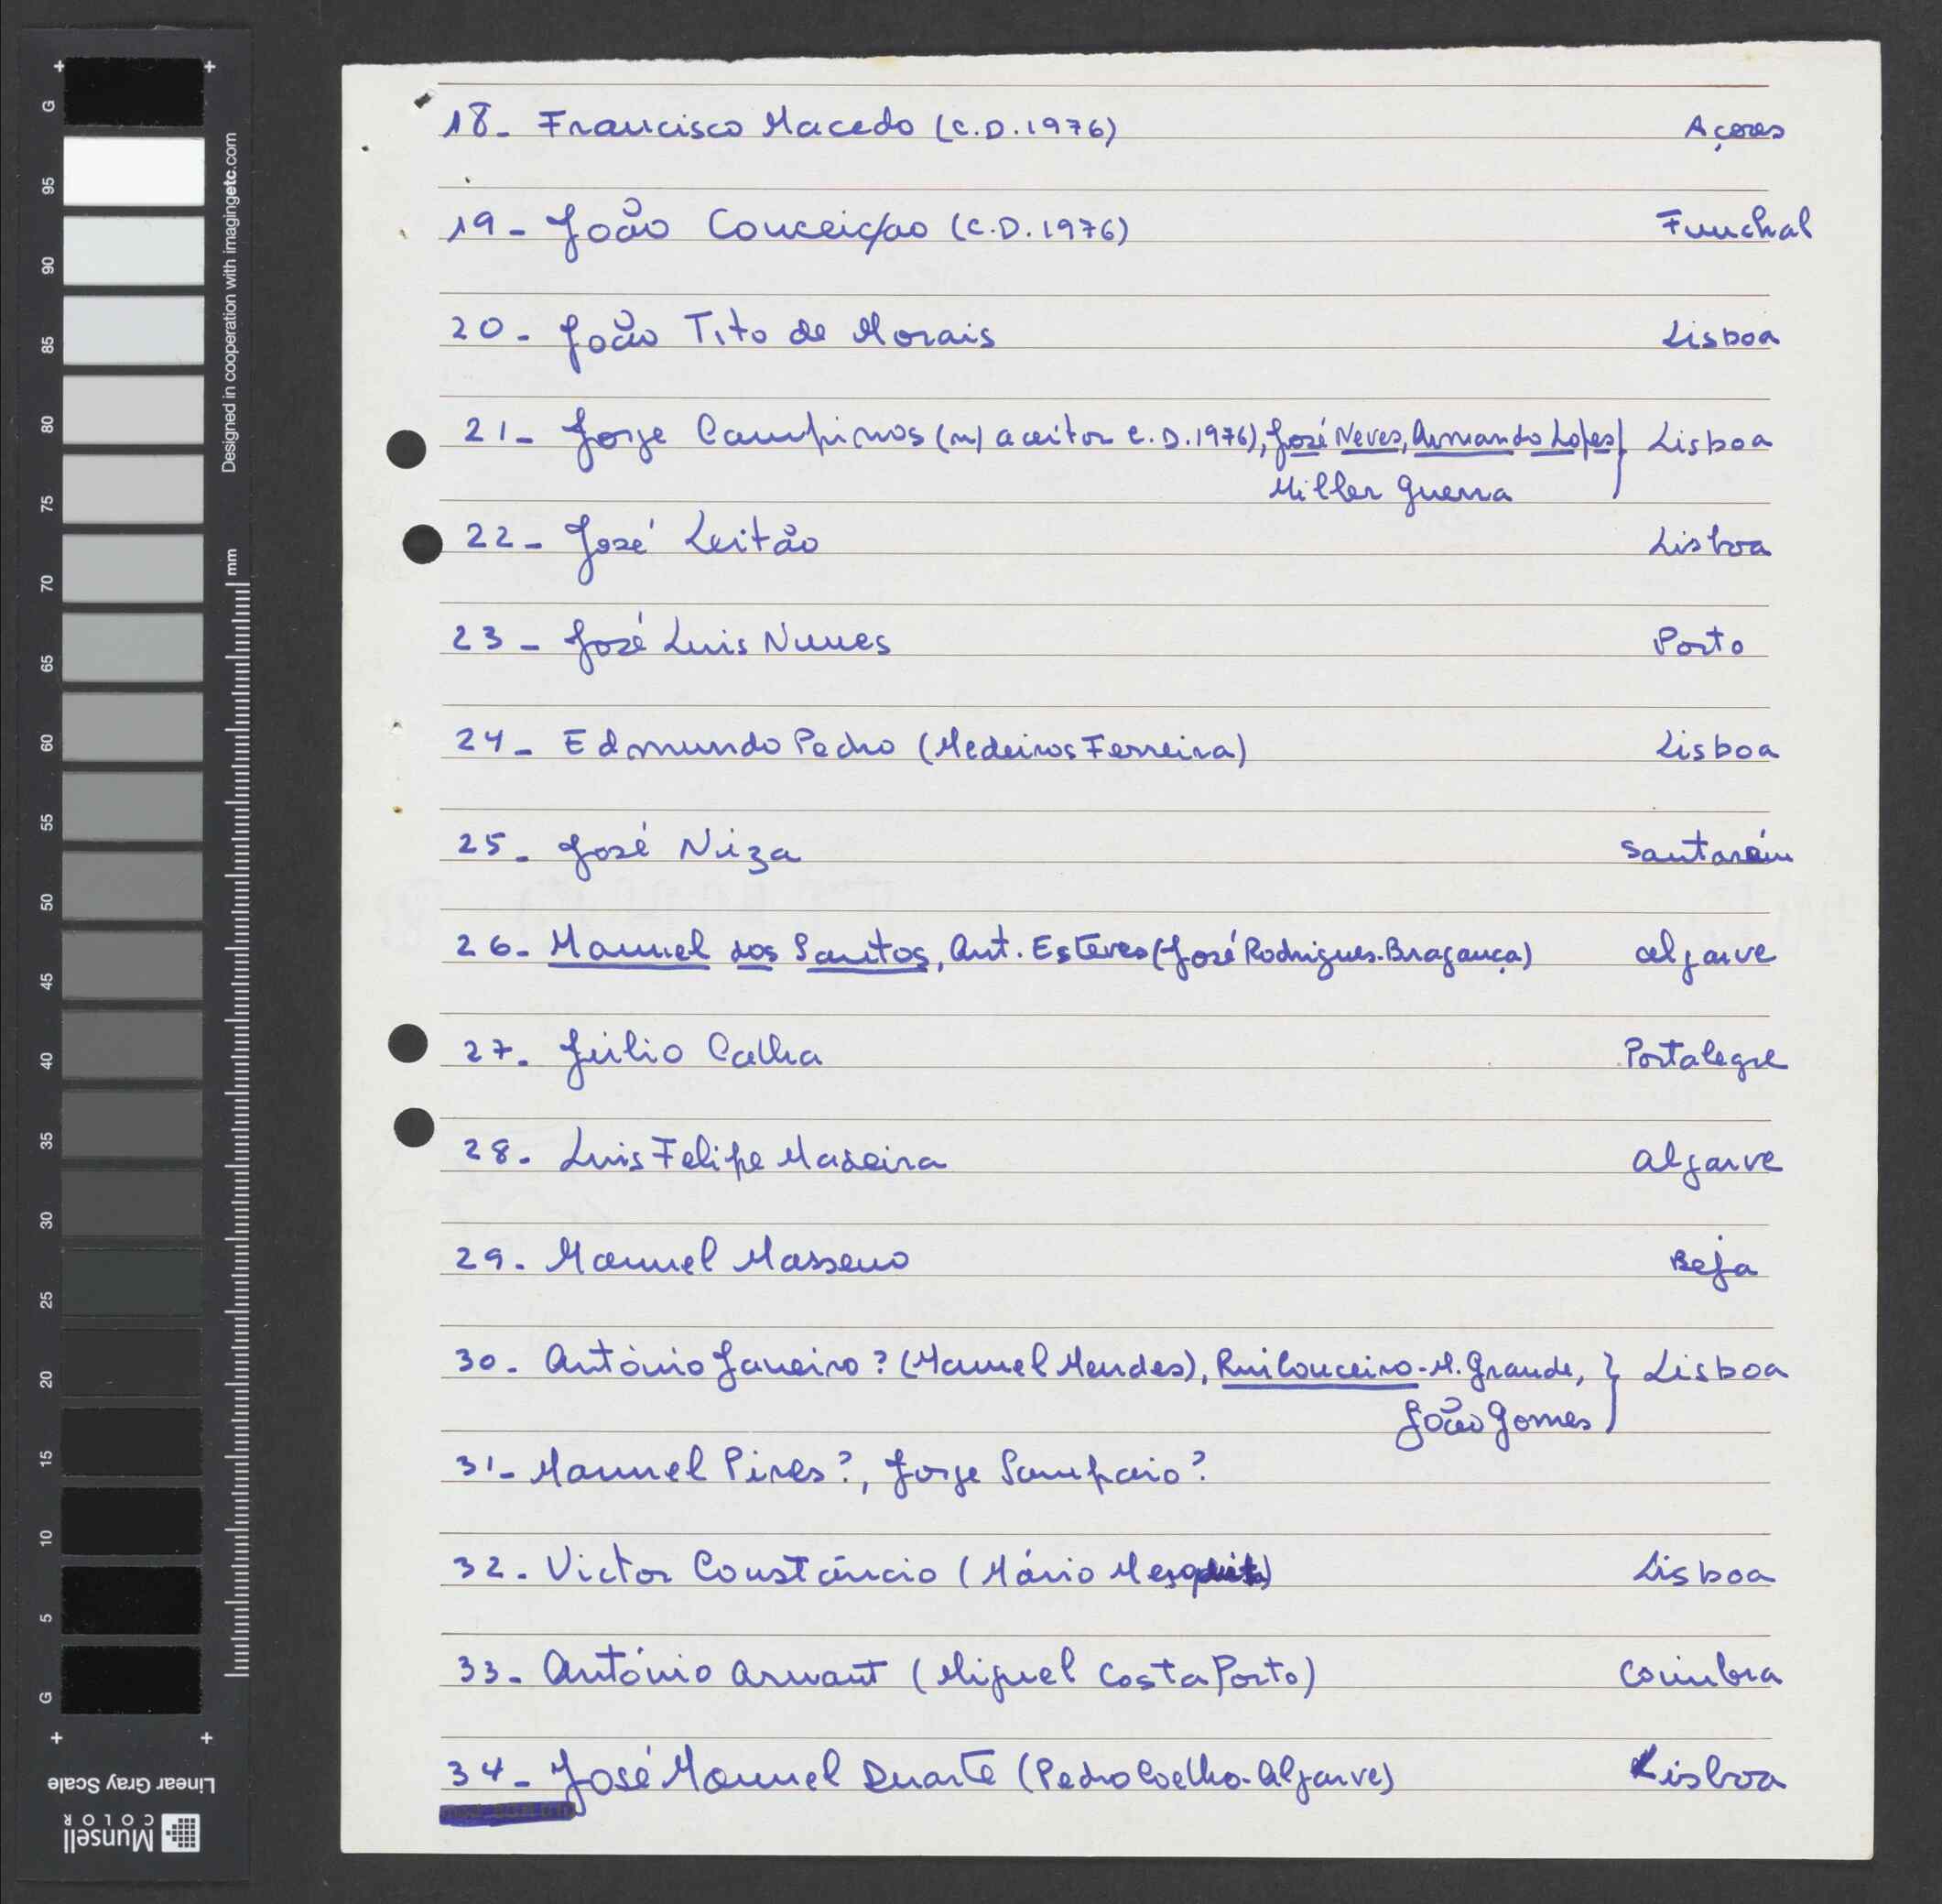 18- Francisco Macedo (C.D.1976) Açores
19- João Conceição (C.D.1976) Funchal
20- João Tito de Morais Lisboa
21- Jorge Campinos (n/ aceitou C.D.1976), José Neves, Armando Lopes } Lisboa
Miller Guerra
22- José Leitão Lisboa
23- José Luis Nunes Porto
24- Edmundo Pedro (Medeiros Ferreira) Lisboa
25- José Niza Santarém
26- Manuel dos Santos, Ant. Esteves (José Rodrigues-Bragança) Algarve
27. Júlio Calha Portalegre
28. Luis Felipe Madeira Algarve
29. Manuel Masseno Beja
30. António Janeiro? (Manuel Mendes), Rui Conceiro - M. Grande, } Lisboa
João Gomes
31- Manuel Pires?, Jorge Sampaio?
32. Victor Constâncio (Mário Mesquita) Lisboa
33- António Arnaut (Miguel Costa Porto) Coimbra
34- José Manuel Duarte (Pedro Coelho-Algarve) Lisboa
+ +
G
95
90
85
80
75
70
65
60
55
50
45
40
35
30
25
20
15
10
5
G
+ +
Designed in cooperation with imagingetc.com
mm
Linear Gray Scale
Munsell
COLOR